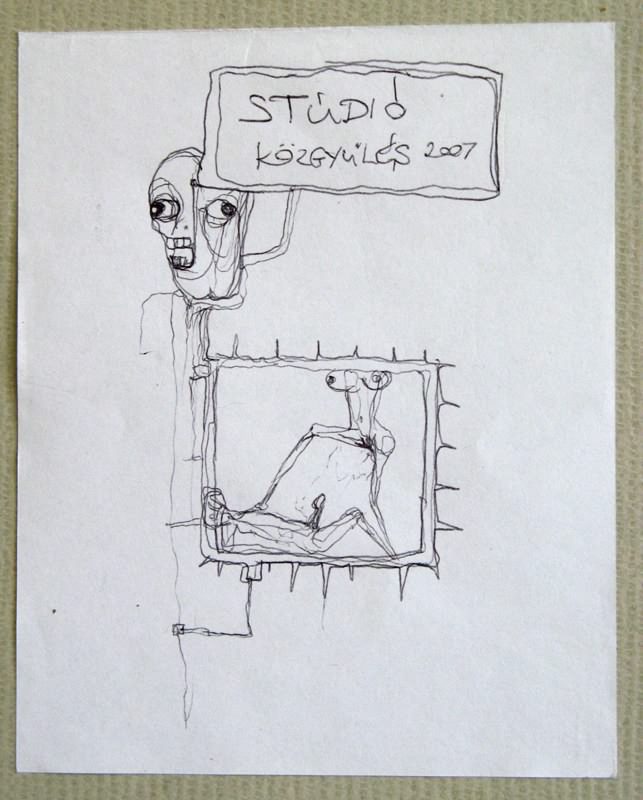 STÚDIÓ
KÖZGYŰLÉS 2007